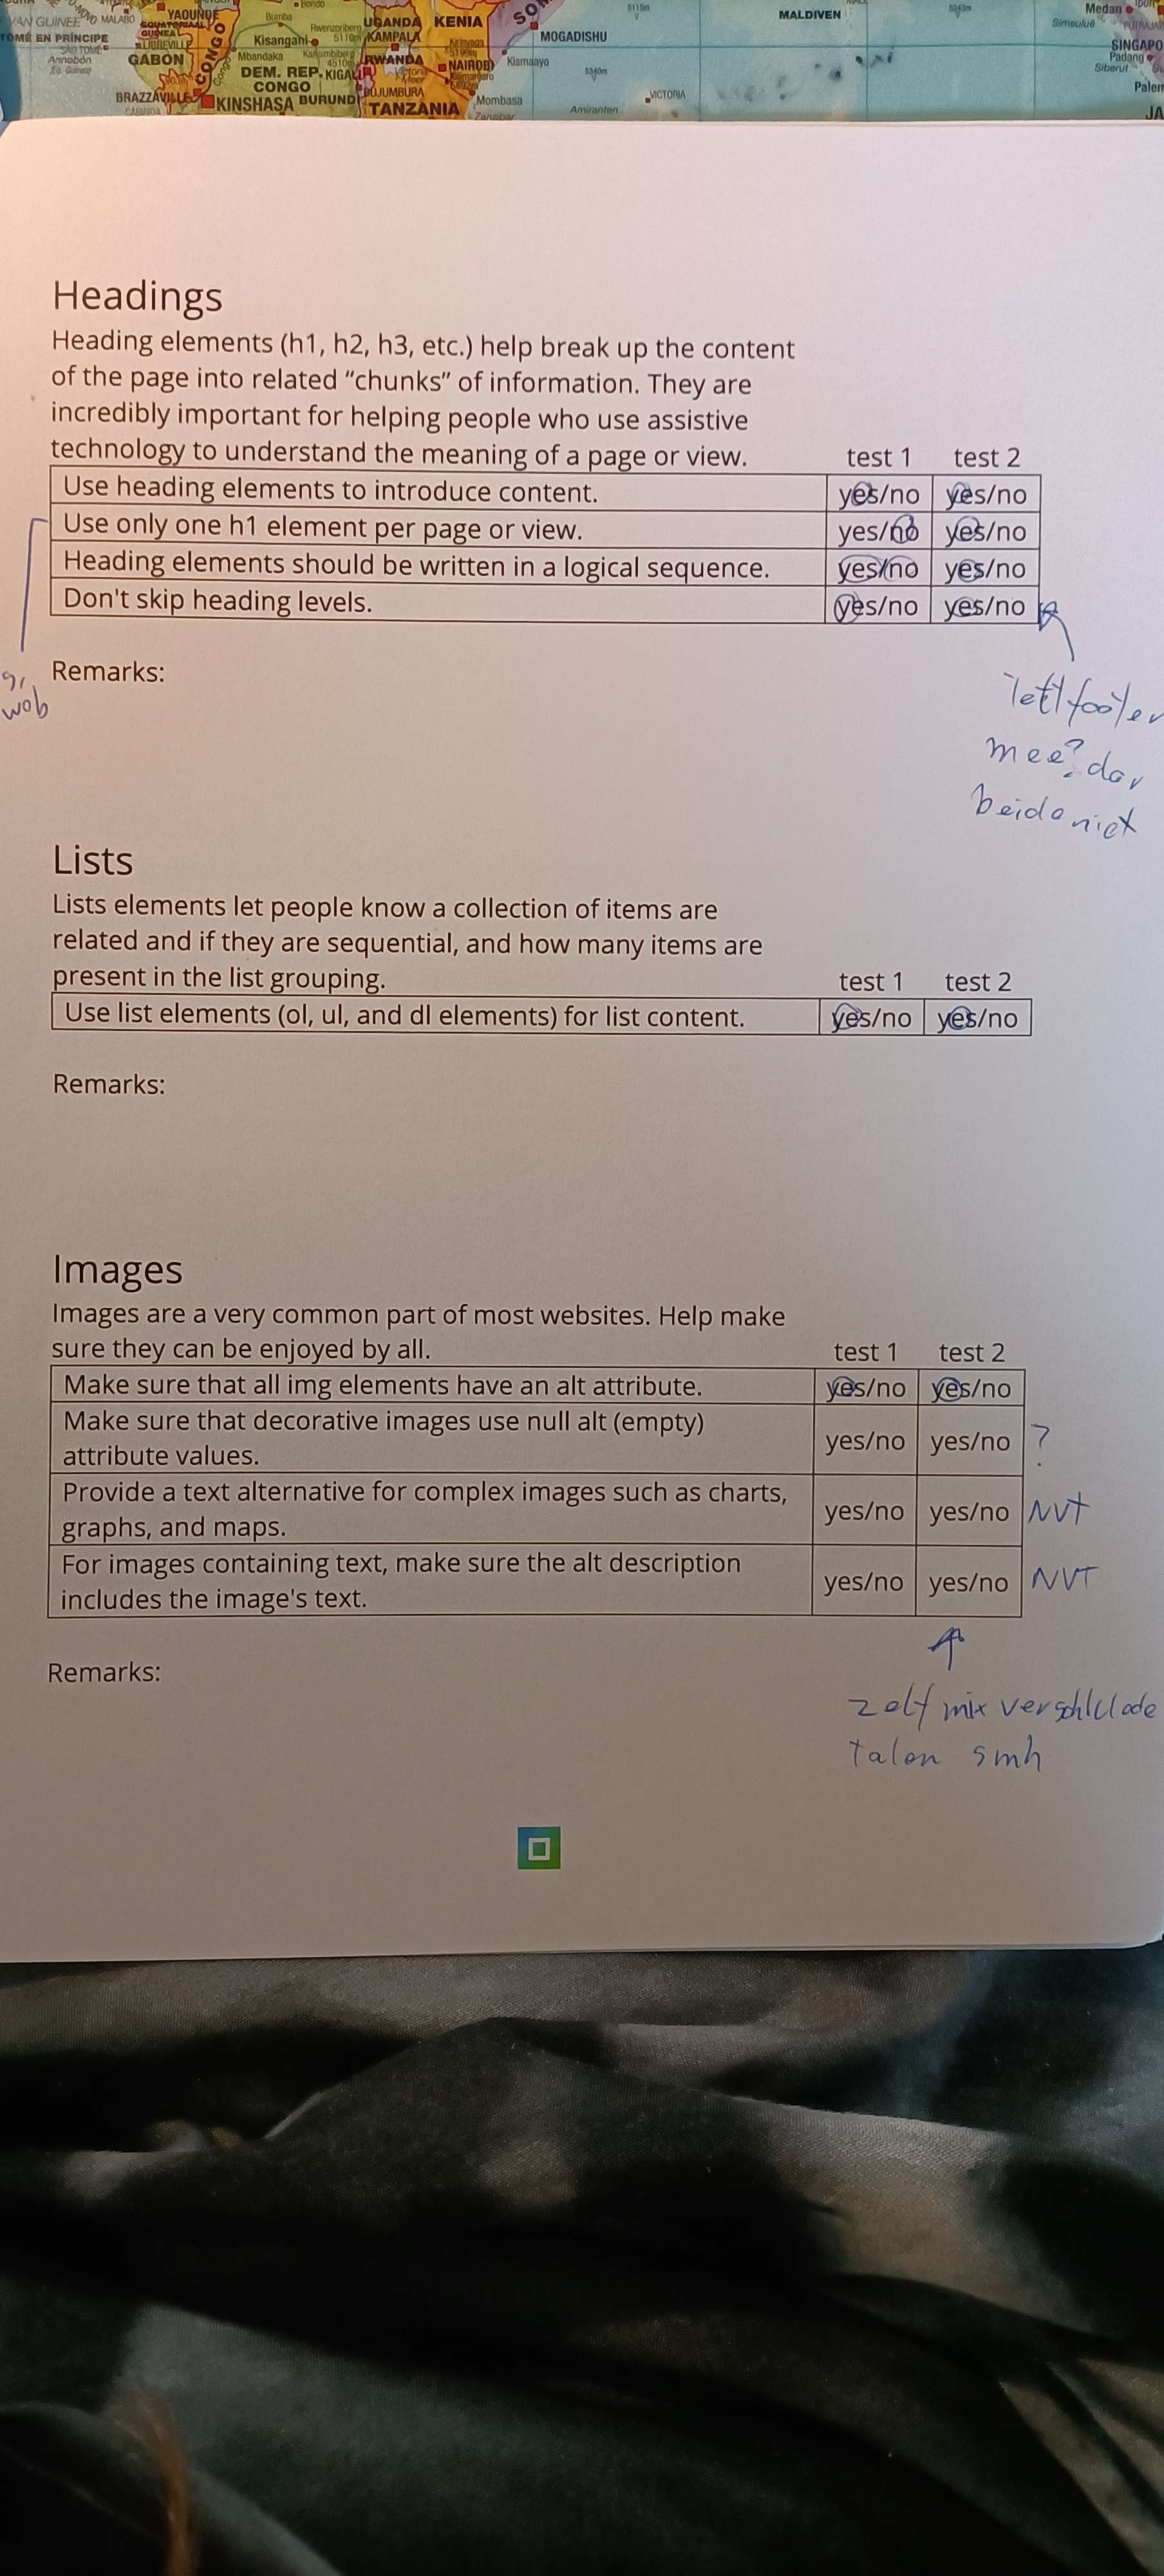 VAN GUINEE
MALABO
YAOUNDÉ
Bumba
Bondo
UGANDA
KENIA
5115m
MALDIVEN
5243m
Medan
Simeulué
TOMÉ EN PRÍNCIPE
SÃO TOMÉ
EQUATORIAAL
GUINEA
LIBREVILLE
Kisangani
Rwenzoriberg
5110m
KAMPALA
MOGADISHU
SINGAPO
Annobón
GABON
CONGO
Mbandaka
Karisimbiberg
4510m
RWANDA
NAIROBI
Kismaayo
5340m
Padang
Siberut
DEM. REP.
KIGALI
CONGO
BRAZZAVILLE
KINSHASA
BURUNDI
BUJUMBURA
TANZANIA
Mombasa
Zanzibar
Amiranten
VICTORIA
Palem
JA
Headings
Heading elements (h1, h2, h3, etc.) help break up the content
of the page into related “chunks” of information. They are
incredibly important for helping people who use assistive
technology to understand the meaning of a page or view. test 1 test 2
Use heading elements to introduce content. yes/no yes/no
Use only one h1 element per page or view. yes/no yes/no
Heading elements should be written in a logical sequence. yes/no yes/no
Don't skip heading levels. yes/no yes/no
Remarks:
wob
footer
mee? dan
beide niet
Lists
Lists elements let people know a collection of items are
related and if they are sequential, and how many items are
present in the list grouping. test 1 test 2
Use list elements (ol, ul, and dl elements) for list content. yes/no yes/no
Remarks:
Images
Images are a very common part of most websites. Help make
sure they can be enjoyed by all. test 1 test 2
Make sure that all img elements have an alt attribute. yes/no yes/no
Make sure that decorative images use null alt (empty)
attribute values. yes/no yes/no ?
Provide a text alternative for complex images such as charts,
graphs, and maps. yes/no yes/no NVT
For images containing text, make sure the alt description
includes the image's text. yes/no yes/no NVT
Remarks:
zelf mix
talen smh